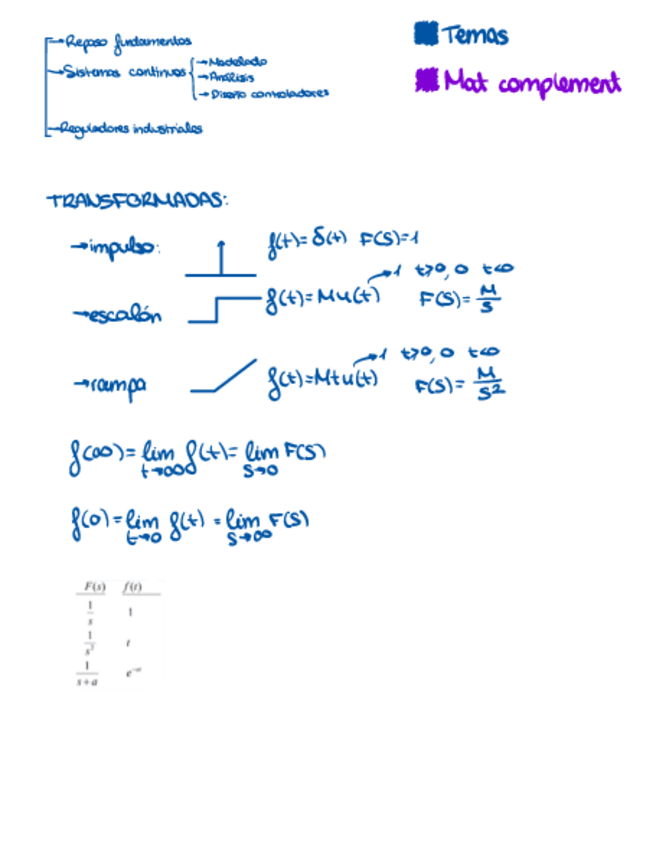 →Repaso fundamentos
→Sistemas continuos
→Modelado
→Análisis
→Diseño controladores
→Reguladores industriales
Temas
Mat complement
TRANSFORMADAS:
→impulso: f(t)=δ(t) F(S)=1
→1 t>0, 0 t<0
→escalón f(t)=Mu(t) F(S)=M/S
→1 t>0, 0 t<0
→rampa f(t)=Mtu(t) F(S)=M/S²
f(∞)=lim t→∞ f(t)=lim S→0 F(S)
f(0)=lim t→0 f(t)=lim S→∞ F(S)
F(s) f(t)
1/s 1
1/s² t
1/(s+a) e^-at